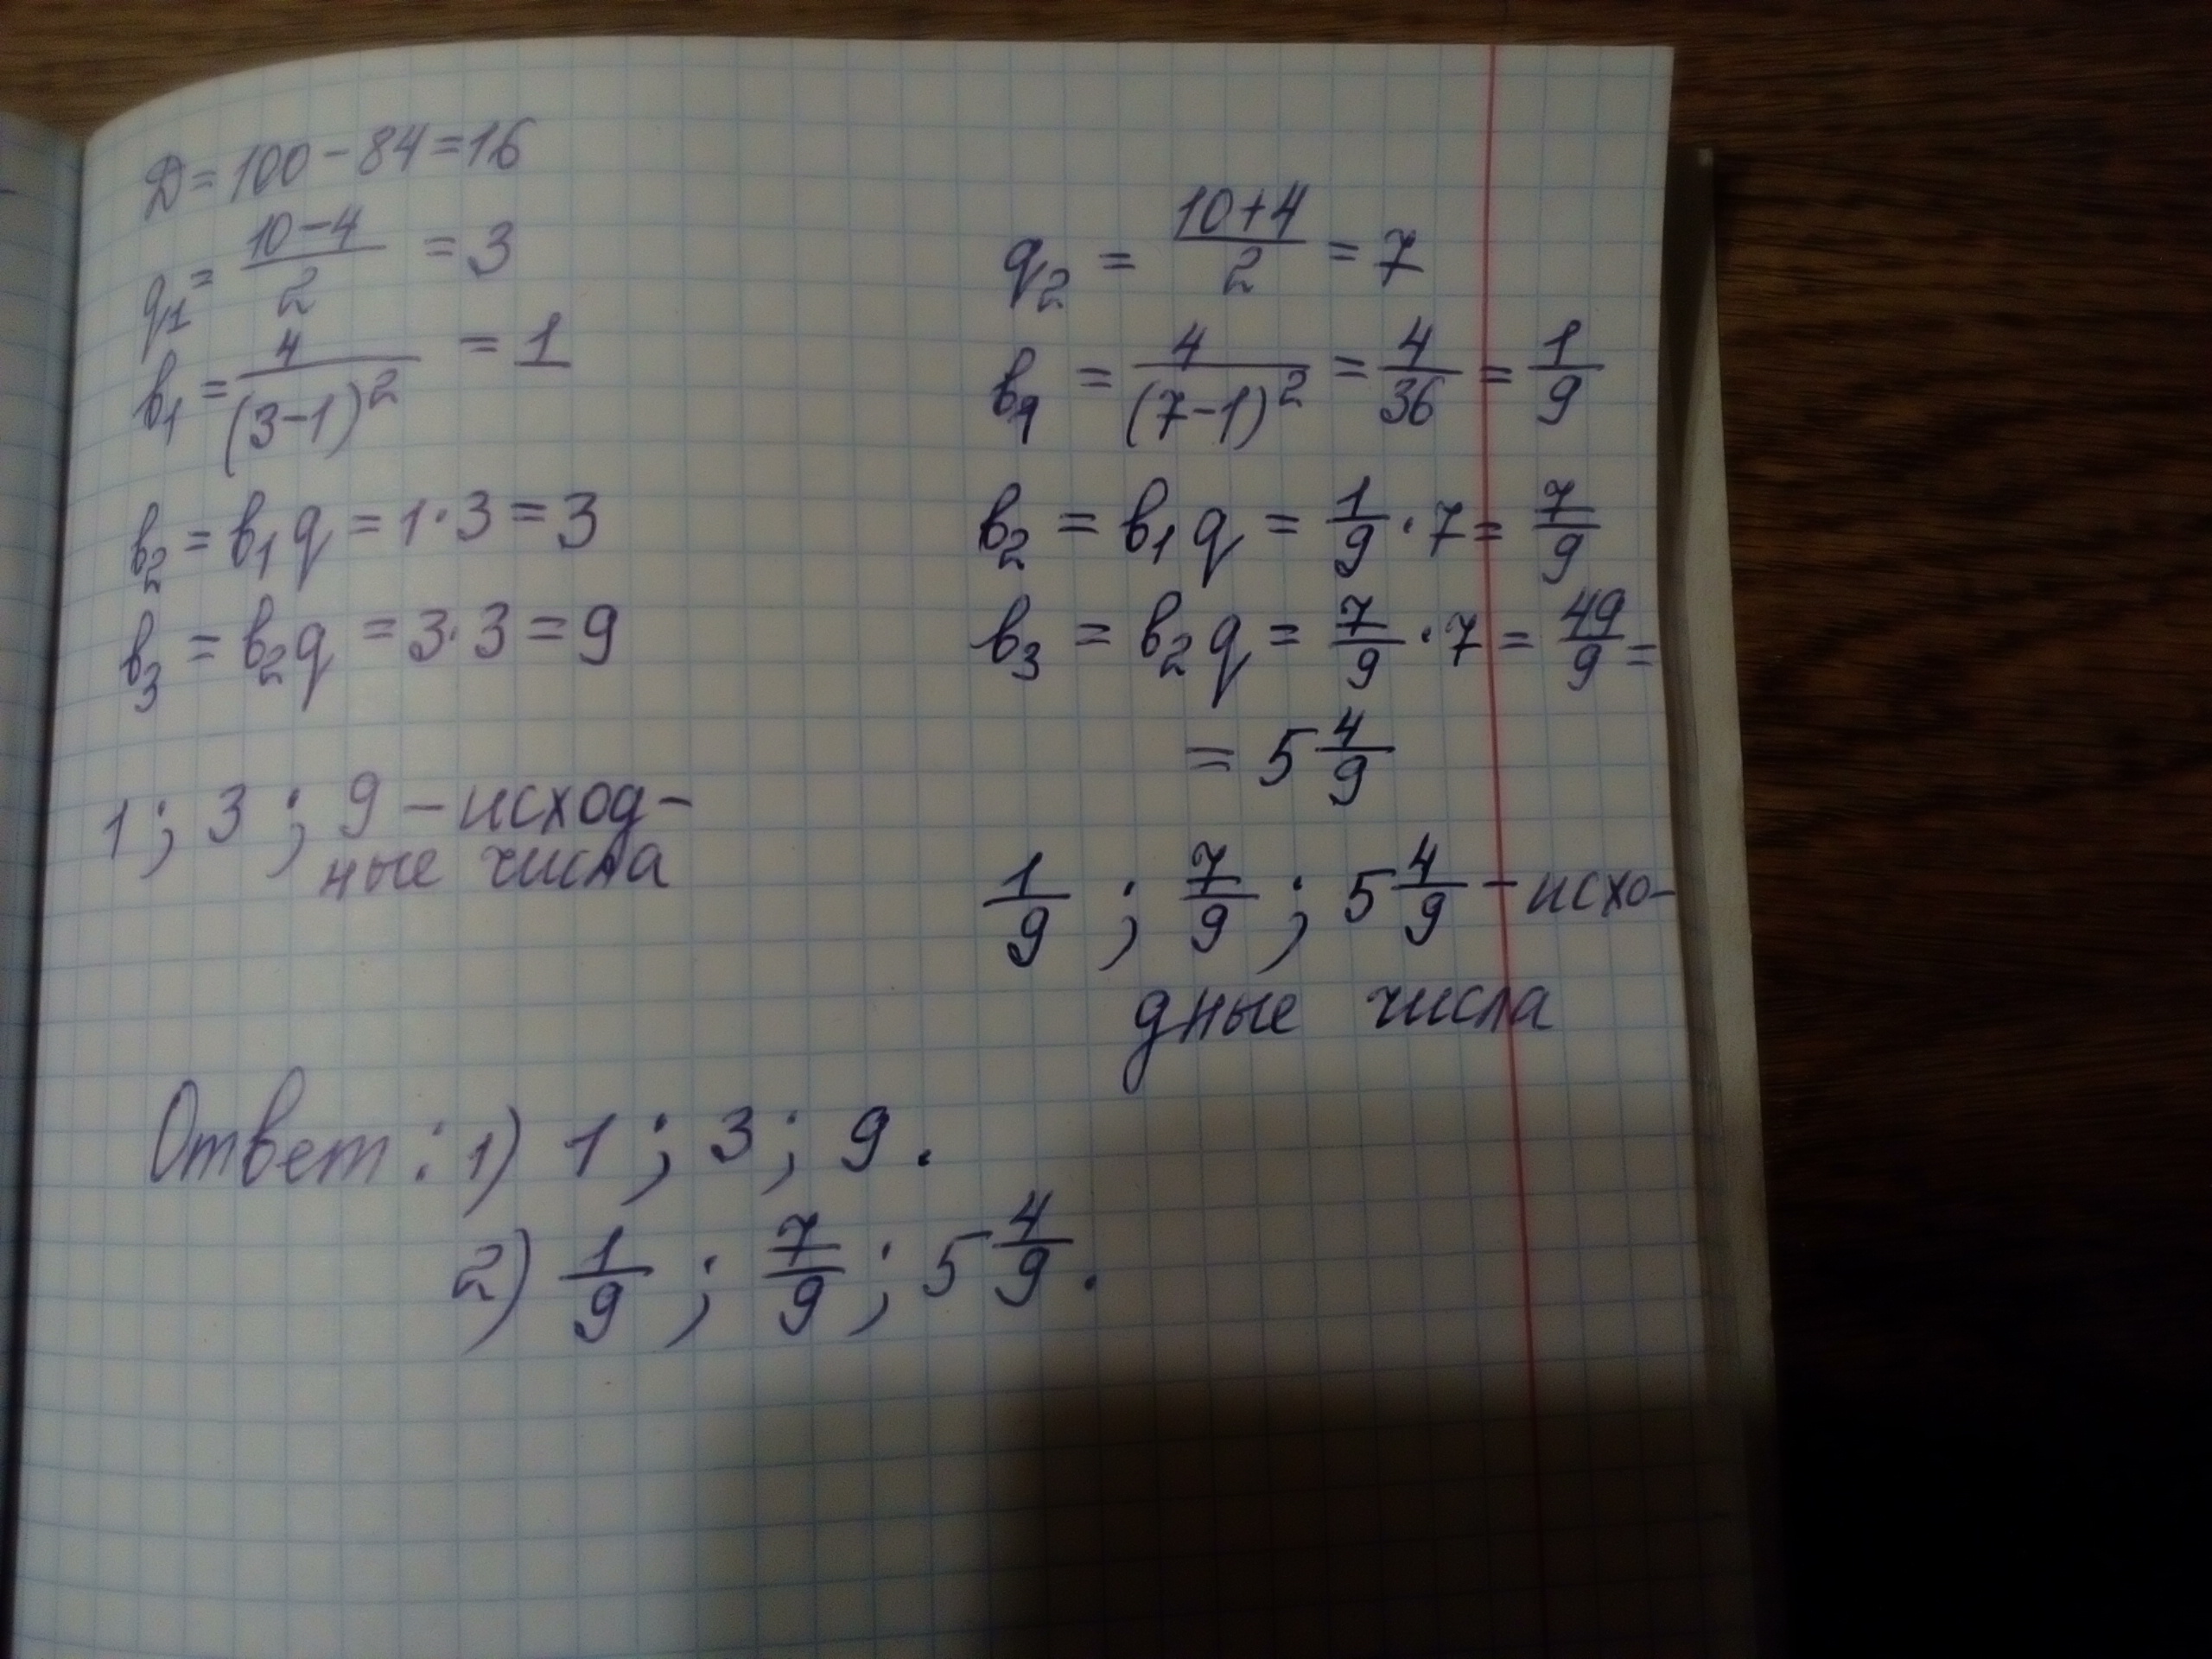 D = 100 - 84 = 16
q₁ = (10 - 4)/2 = 3
в₁ = 4/(3-1)² = 1
в₂ = в₁q = 1·3 = 3
в₃ = в₂q = 3·3 = 9
1; 3; 9 - исход-
ные числа
q₂ = (10+4)/2 = 7
в₁ = 4/(7-1)² = 4/36 = 1/9
в₂ = в₁q = 1/9 · 7 = 7/9
в₃ = в₂q = 7/9 · 7 = 49/9 =
= 5 4/9
1/9; 7/9; 5 4/9 - исхо-
дные числа
Ответ: 1) 1; 3; 9.
2) 1/9; 7/9; 5 4/9.